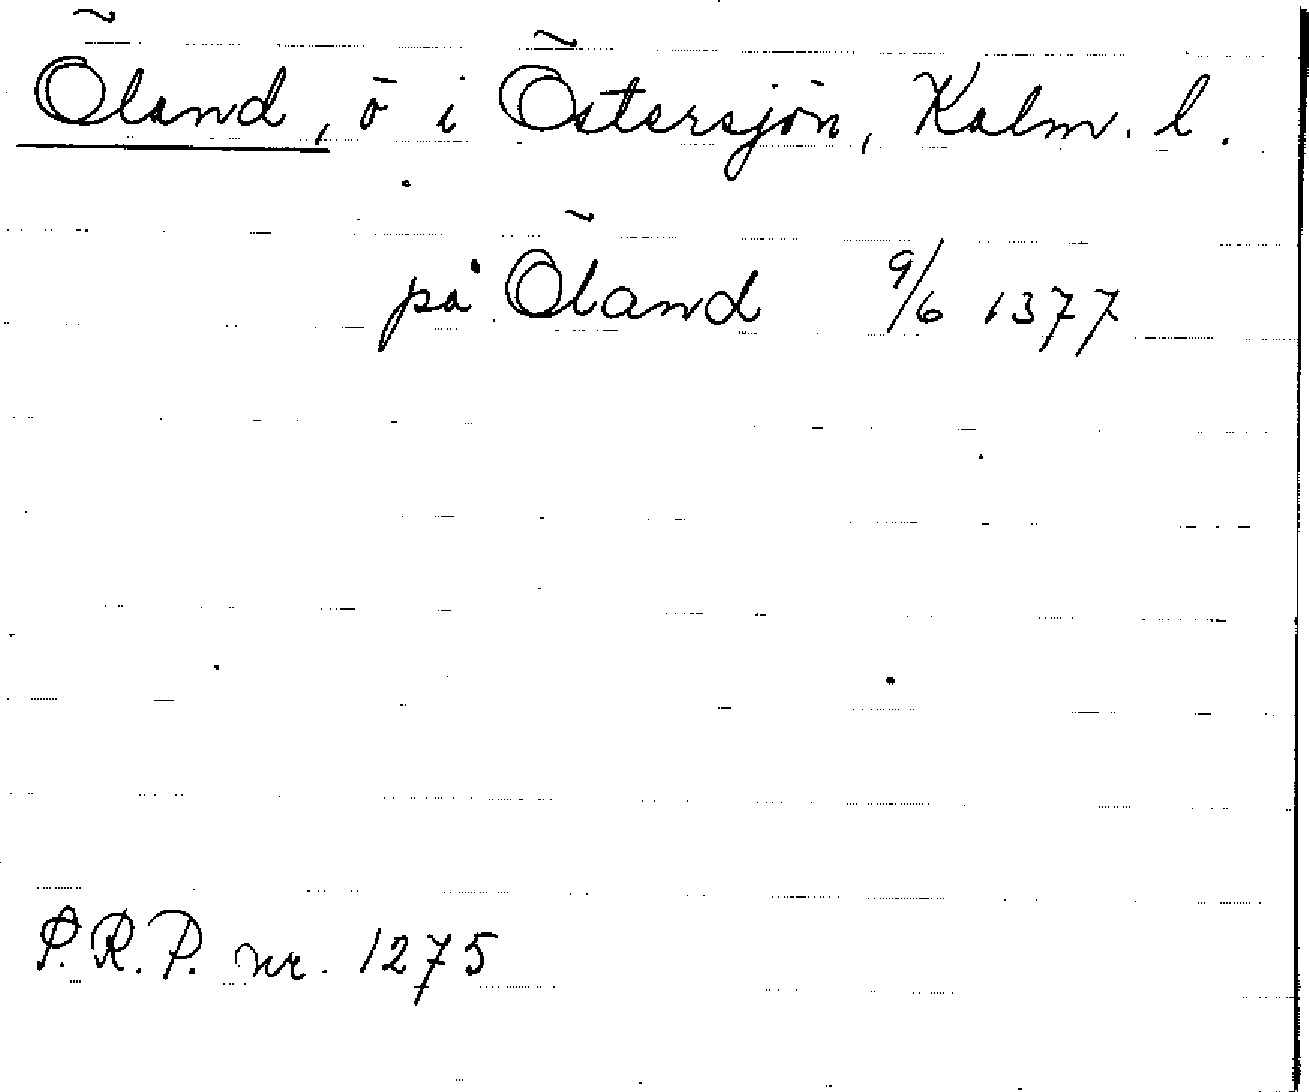 Öland, ö i Östersjön, Kalm. l.
på Öland 9/6 1377
S.R.P. nr. 1275